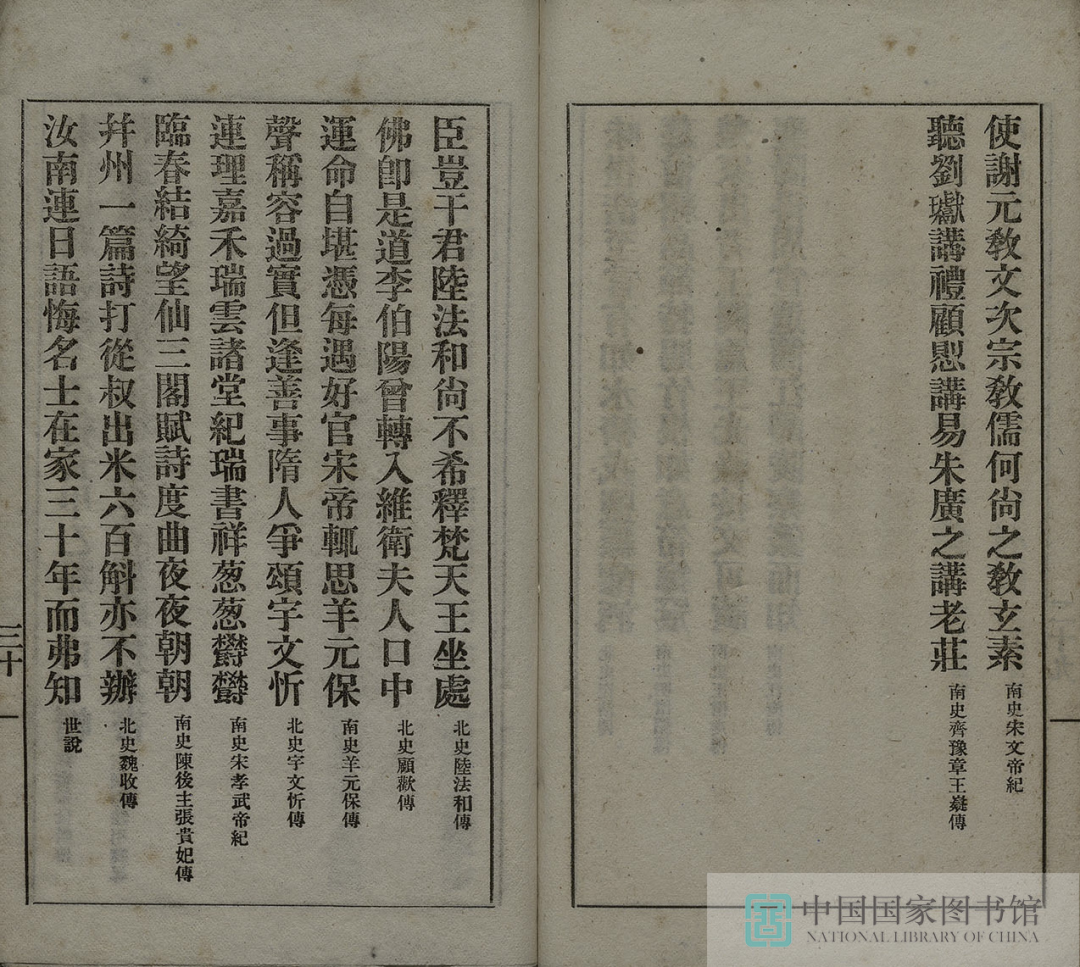 使謝元教文次宗教儒何尚之教玄素 南史宋文帝紀
聽劉瓛講禮顧懽講易朱廣之講老莊 南史齊豫章王嶷傳
臣豈干君陸法和尙不希釋梵天王坐處 北史陸法和傳
佛卽是道李伯陽曾轉入維衛夫人口中 北史顧歡傳
運命自堪憑每遇好官宋帝輒思羊元保 南史羊元保傳
聲稱容過實但逢善事隋人爭頌宇文忻 北史宇文忻傳
連理嘉禾瑞雲諸堂紀瑞書祥葱葱鬱鬱 南史宋孝武帝紀
臨春結綺望仙三閣賦詩度曲夜夜朝朝 南史陳後主張貴妃傳
幷州一篇詩打從叔出米六百斛亦不辦 北史魏收傳
汝南連日語悔名士在家三十年而弗知 世說
三十
中国国家图书馆
NATIONAL LIBRARY OF CHINA